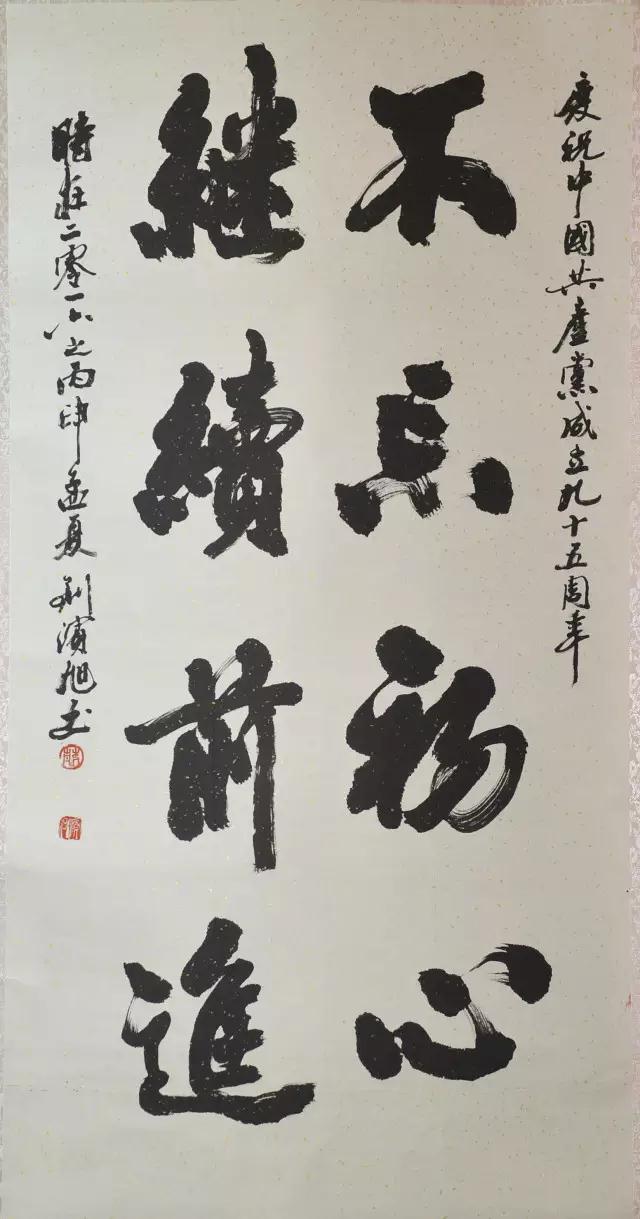 慶祝中國共產黨成立九十五周年
不忘初心
继續前進
時在二零一六之丙申孟夏 刘濱旭书